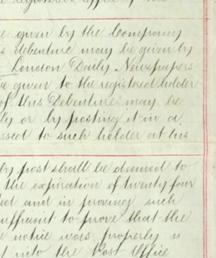 e given by the Company
is debenture may be given by
London Daily Newspapers
e given to the registered holder
of this Debenture may be
ly or by posting it in a
essed to such holder at his
by post shall be deemed to
the expiration of twenty four
and in proving such
sufficient to prove that the
notice was properly
into the Post Office